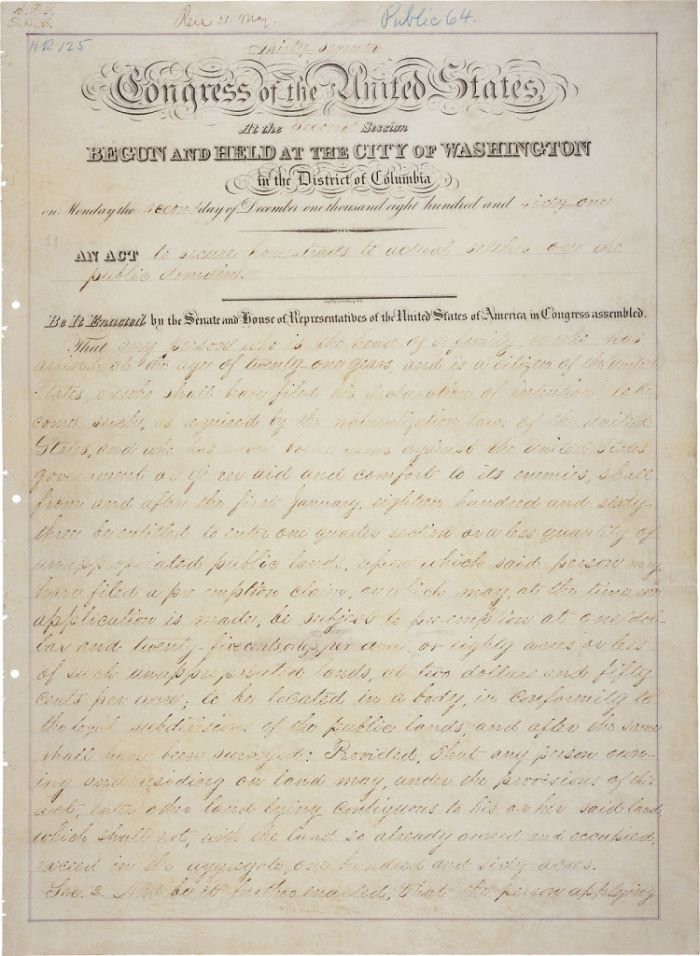 Public 64.
HR 125
Thirty-seventh
Congress of the United States,
At the Second Session
BEGUN AND HELD AT THE CITY OF WASHINGTON
in the District of Columbia
on Monday the second day of December one thousand eight hundred and sixty-one
AN ACT to secure homesteads to actual settlers on the
public domain.
Be It Enacted by the Senate and House of Representatives of the United States of America in Congress assembled.
That any person who is the head of a family, or who has
arrived at the age of twenty-one years, and is a citizen of the United
States, or who shall have filed his declaration of intention to be-
come such, as required by the naturalization laws of the United
States, and who has never borne arms against the United States
government or given aid and comfort to its enemies, shall
from and after the first January, eighteen hundred and sixty-
three be entitled to enter one quarter section or a less quantity of
unappropriated public lands, upon which said person may
have filed a preemption claim, or which may, at the time
application is made, be subject to preemption at one dol-
lar and twenty-five cents, or less, per acre, or eighty acres or less
of such unappropriated lands, at two dollars and fifty
cents per acre, to be located in a body, in conformity to
the legal subdivisions of the public lands, and after the same
shall have been surveyed: Provided, That any person own-
ing and residing on land may, under the provisions of this
act, enter other land lying contiguous to his or her said land,
which shall not, with the land so already owned and occupied,
exceed in the aggregate one hundred and sixty acres.
Sec. 2. And be it further enacted, That the person applying